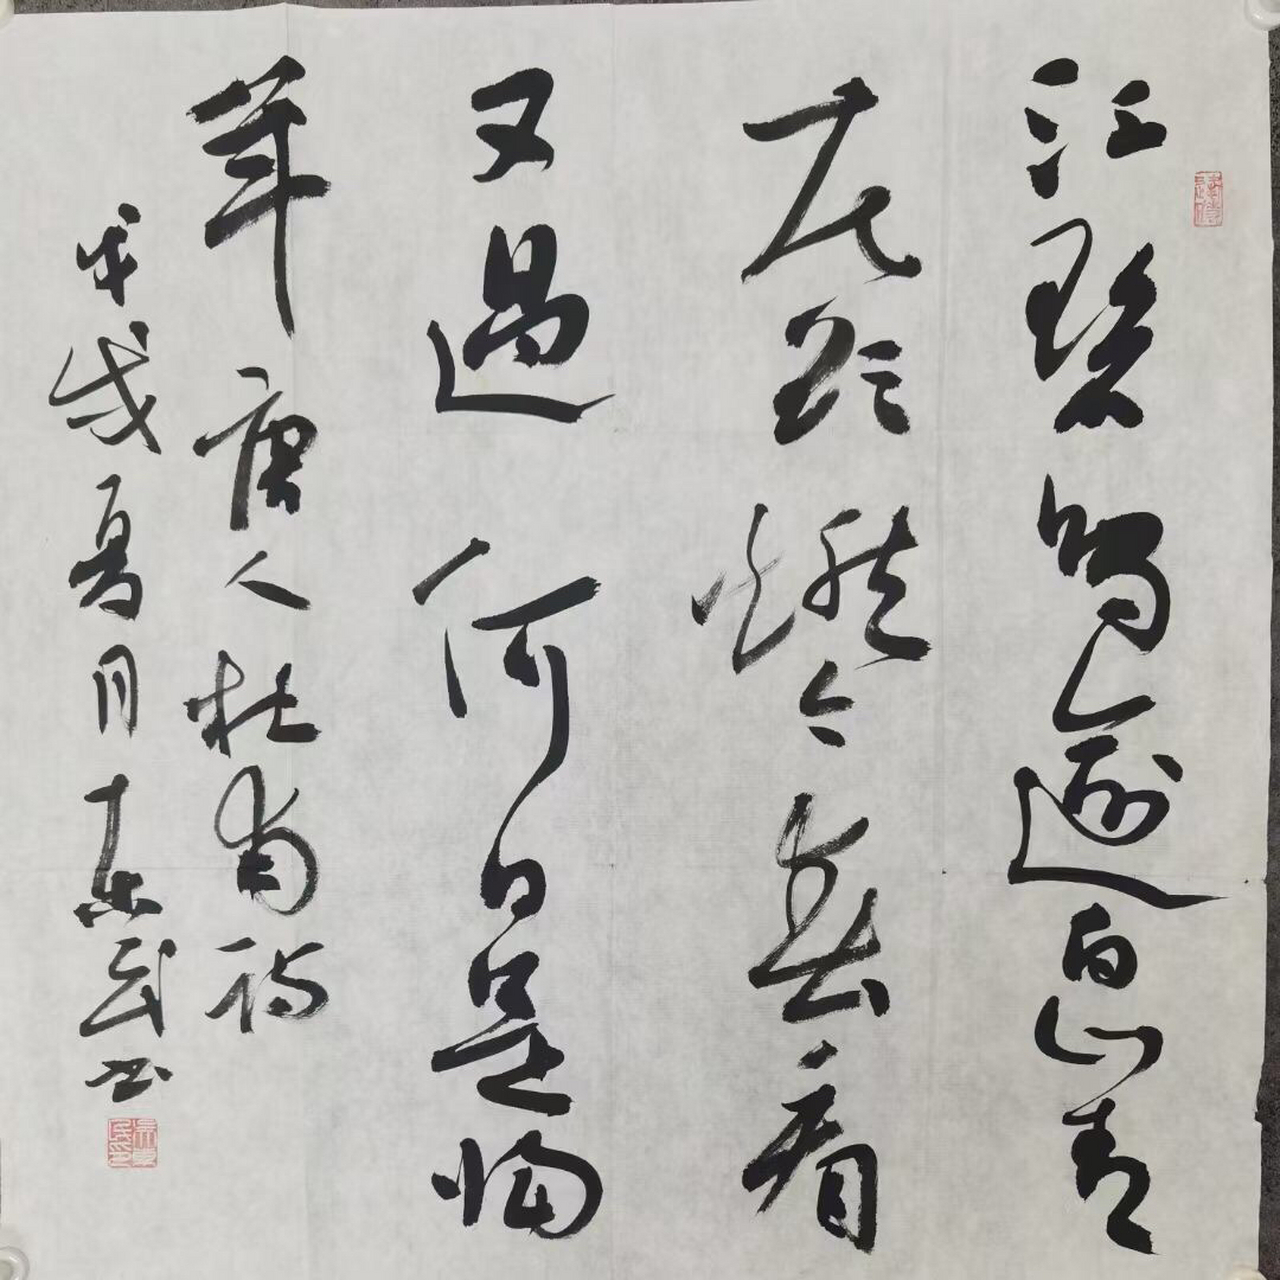 江碧鸟逾白山青
花欲燃今春看
又过何日是归
年 唐人杜甫诗
戊夏月东民书